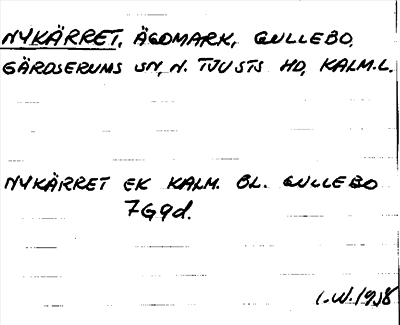 NYKÄRRET, ÄGOMARK, GULLEBO,
GÄRDSERUMS SN, N. TJUSTS HD, KALM.L.
NYKÄRRET EK KALM. BL. GULLEBO
7G9d.